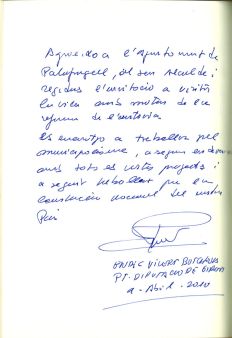 Agraeixo a l'Ajuntament de
Palafrugell, al seu Alcalde i
regidors l'invitació a visitar
la vila amb motiu de la
de l'història
Us encoratjo a treballar pel
municipalisme, a seguir en
amb tots els vostres projectes i
a seguir treballant per la
construcció nacional del nostre
País
ENRIC VILERT BUTCHOSA
PT. DIPUTACIÓ DE GIRONA
Abril 2010